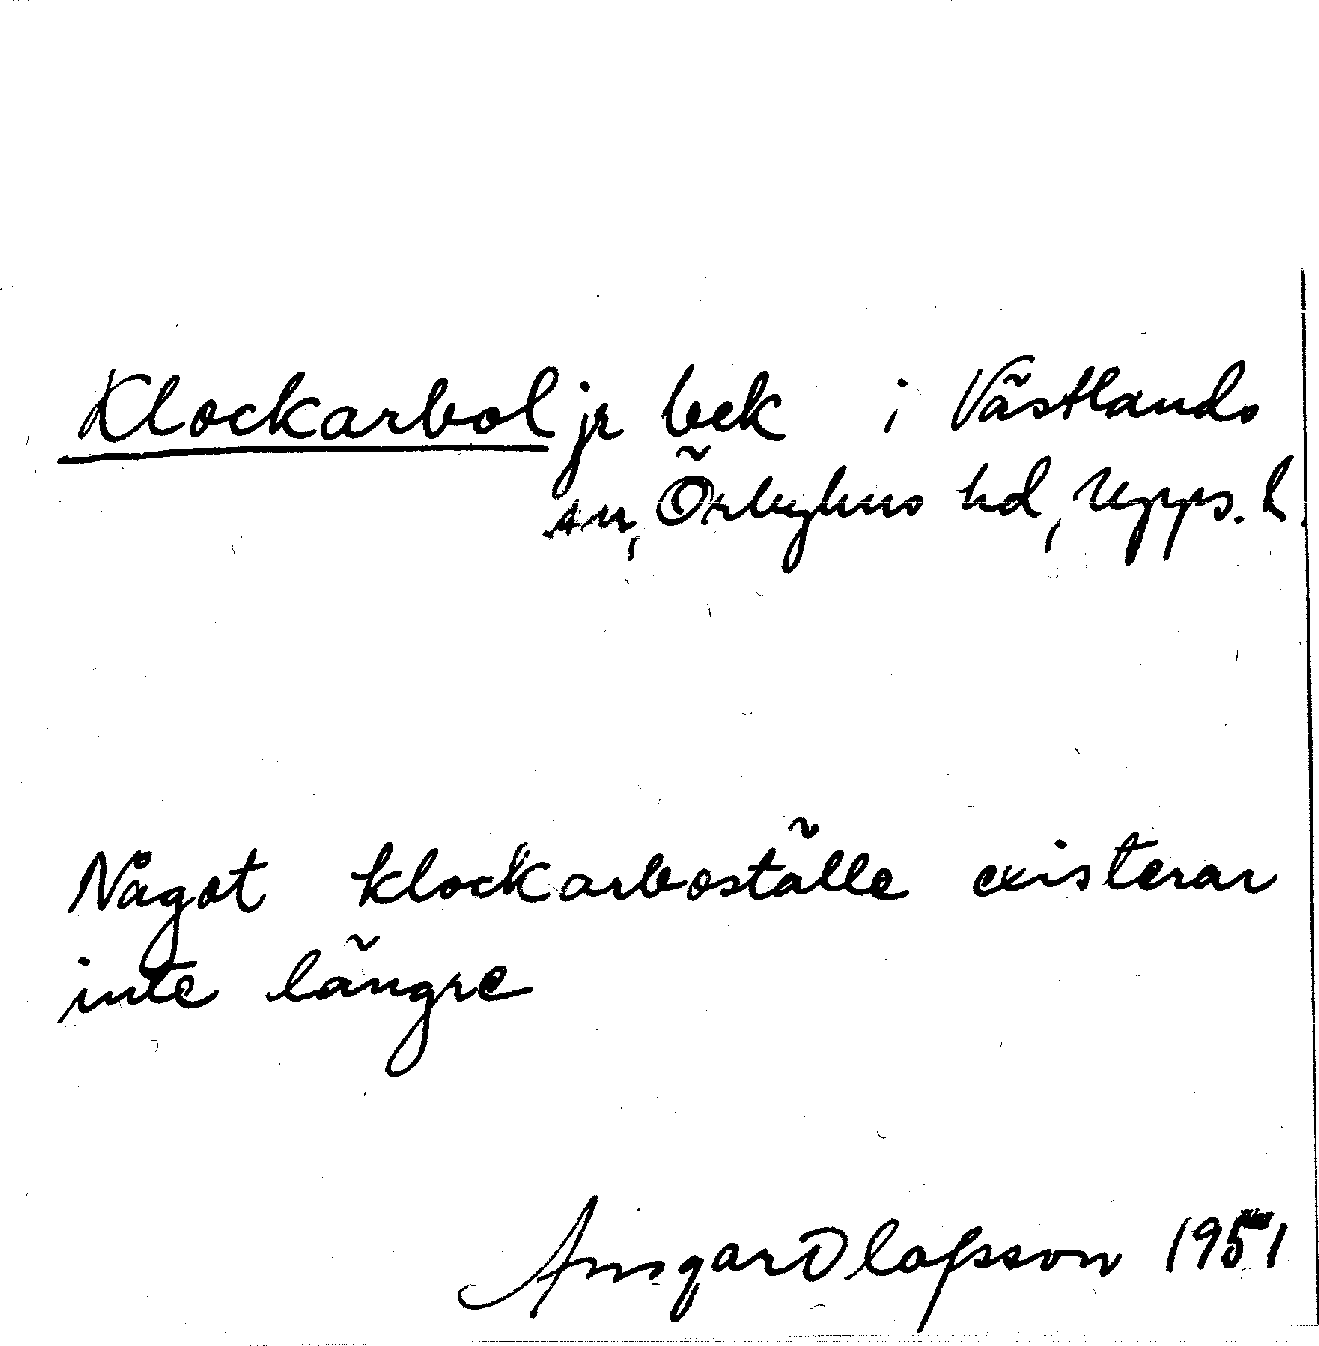 Klockarbol jr bek i Västlands
sn, Örbyhus hd, Upps. l.
Något klockarboställe existerar
inte längre
Ansgar Olafsson 1951